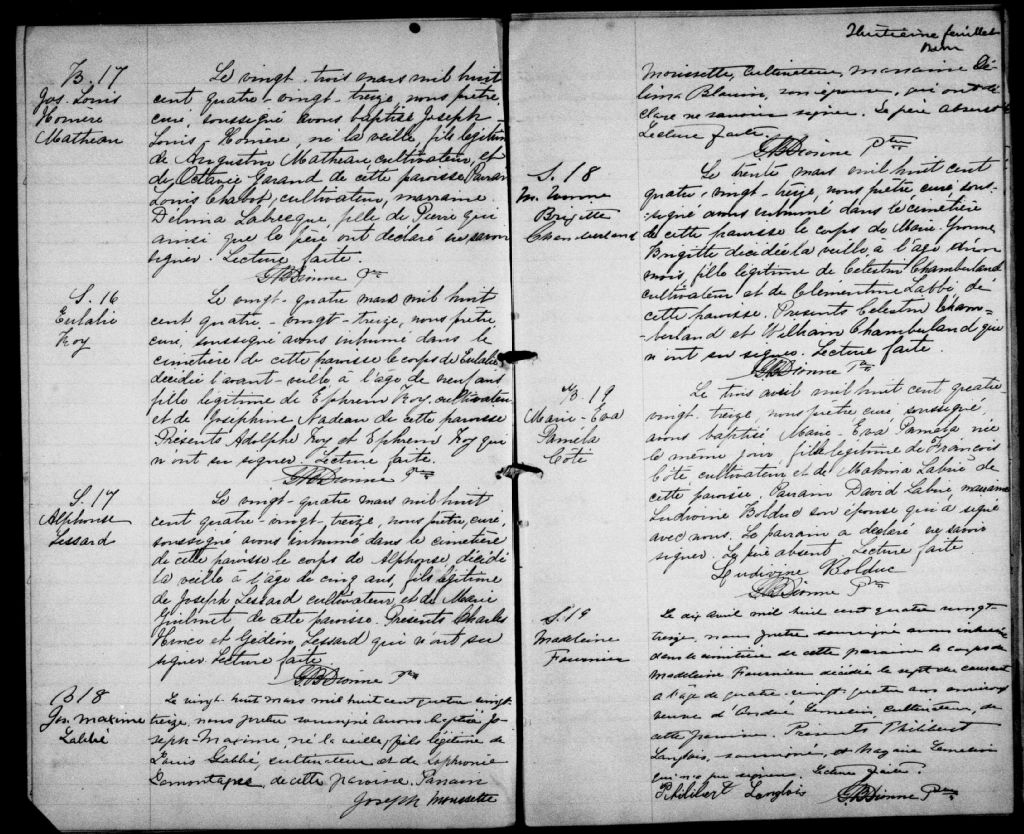 B. 17
Jos. Louis
Homère
Matheau
Le vingt-trois mars mil huit
cent quatre-vingt-treize, nous prêtre
curé, soussigné avons baptisé Joseph-
Louis, Homère né la veille, fils légitime
de Augustin Matheau cultivateur, et
de Octavie Garand de cette paroisse Parrain
Louis Chabot, cultivateur, marraine
Delima Labecque, fille de Pierre qui
ainsi que le père ont déclaré ne savoir
signer. Lecture faite.
Dionne Ptre
S. 16
Eulalie
Roy
Le vingt-quatre mars mil huit
cent quatre-vingt-treize, nous prêtre
curé, soussigné avons inhumé dans le
cimetière de cette paroisse le corps de Eulalie
décédée l'avant-veille, à l'âge de neuf ans
fille légitime de Ephrem Roy, cultivateur
et de Joséphine Nadeau de cette paroisse
Présents Adolphe Roy et Ephrem Roy qui
n'ont su signer. Lecture faite.
Dionne Ptre
S. 17
Alphonse
Lessard
Le vingt-quatre mars mil huit
cent quatre-vingt-treize, nous prêtre, curé,
soussigné avons inhumé dans le cimetière
de cette paroisse le corps de Alphonse, décédé
la veille à l'âge de cinq ans, fils légitime
de Joseph Lessard cultivateur et de Marie
de cette paroisse. Présents Charles
et Gédéon Lessard qui n'ont su
signer. Lecture faite
Dionne Ptre
B 18
Jos. Maxime
Labbé
Le vingt huit mars mil huit cent quatre vingt
treize, nous prêtre soussigné avons baptisé Jo-
seph-Maxime, né la veille, fils légitime de
Louis Labbé, cultivateur et de Sophronie
Lamontagne de cette paroisse. Parrain
Joseph Morissette
Huitième feuillet
Morissette, cultivateur, marraine Cé-
lina Blouin, son épouse, qui ont dé-
claré ne savoir signer. Le père absent
Lecture faite.
Dionne Ptre
S. 18
M. Yvonne
Brigitte
Chamberland
Le trente mars mil huit cent
quatre-vingt-treize, nous prêtre curé sous-
signé avons inhumé dans le cimetière
de cette paroisse le corps de Marie-Yvonne
Brigitte décédée la veille à l'âge d'un
mois, fille légitime de Célestin Chamberland
cultivateur et de Clémentine Labbé de
cette paroisse. Présents Célestin Cham-
berland et William Chamberland qui
n'ont su signer. Lecture faite.
Dionne Ptre
B 19
Marie-Eva
Paméla
Coté
Le trois avril mil huit cent quatre
vingt-treize, nous prêtre curé soussigné
avons baptisé Marie-Eva Paméla née
le même jour, fille légitime de François
Côté, cultivateur et de Malvina Labrie de
cette paroisse. Parrain David Labrie, marraine
Ludivine Bolduc son épouse qui a signé
avec nous. Le parrain a déclaré ne savoir
signer. Le père absent. Lecture faite.
Ludivine Bolduc
Dionne Ptre
S. 19
Madeleine
Fournier
Le dix avril mil huit cent quatre vingt
treize, nous prêtre soussigné avons inhumé
dans le cimetière de cette paroisse le corps de
Madeleine Fournier décédée le sept du courant
a l'âge de quatre-vingt-quatre ans environ
veuve d'André Lemelin, cultivateur, de
cette paroisse. Présents Philibert
Langlois, et Nazaire Lemelin
qui n'a pu signer. Lecture faite.
Philibert Langlois Dionne Ptre